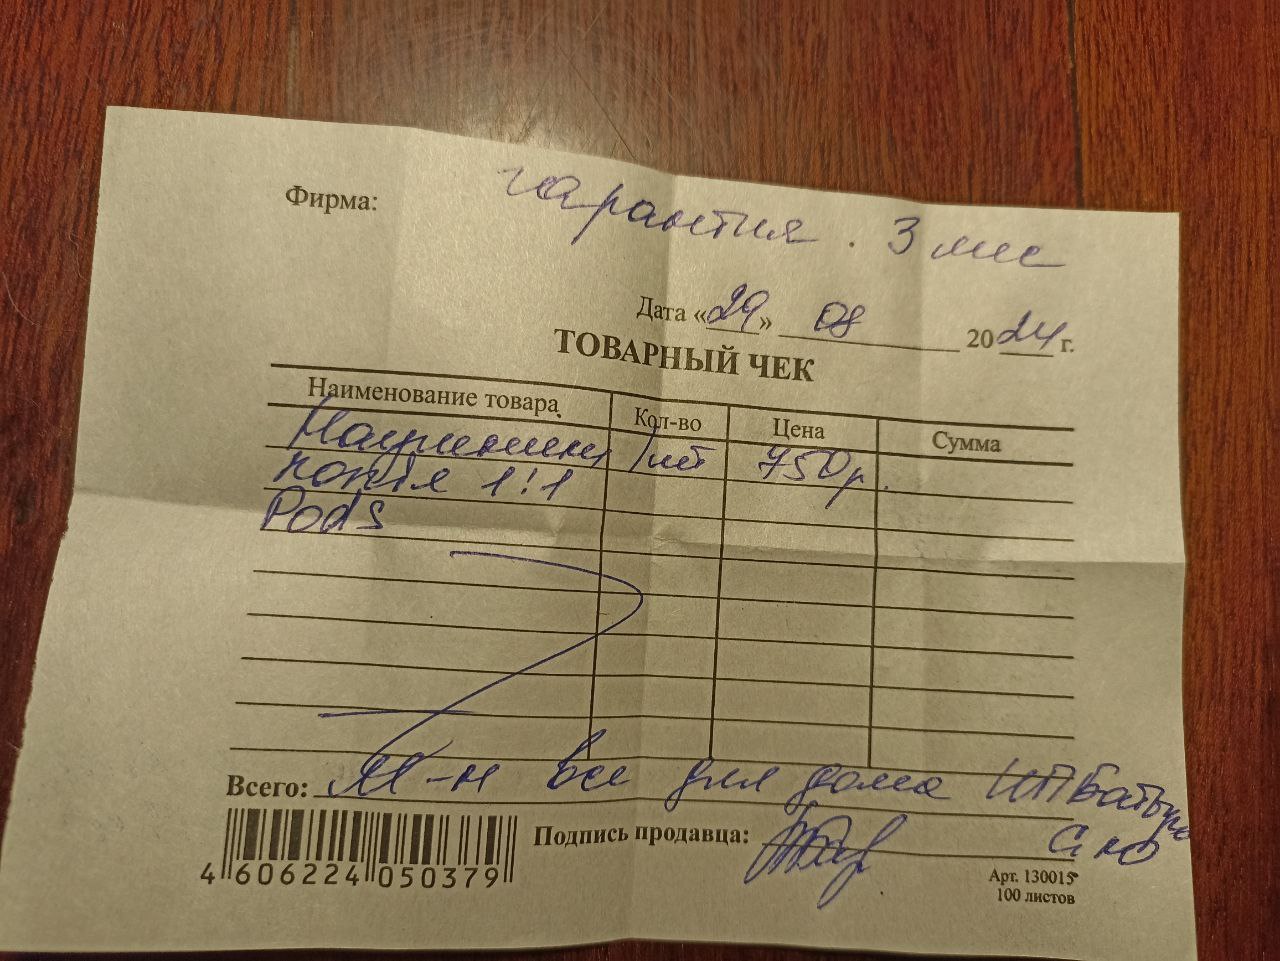 Фирма: гарантия. 3 мес
Дата «29» 08 2024 г.
ТОВАРНЫЙ ЧЕК
Наименование товара Кол-во Цена Сумма
Наушники 1шт 750р.
копия 1:1
Pods
Всего: М-н все для дома ИП Батыро
Подпись продавца: С Ю
4 606224 050379
Арт. 130015
100 листов